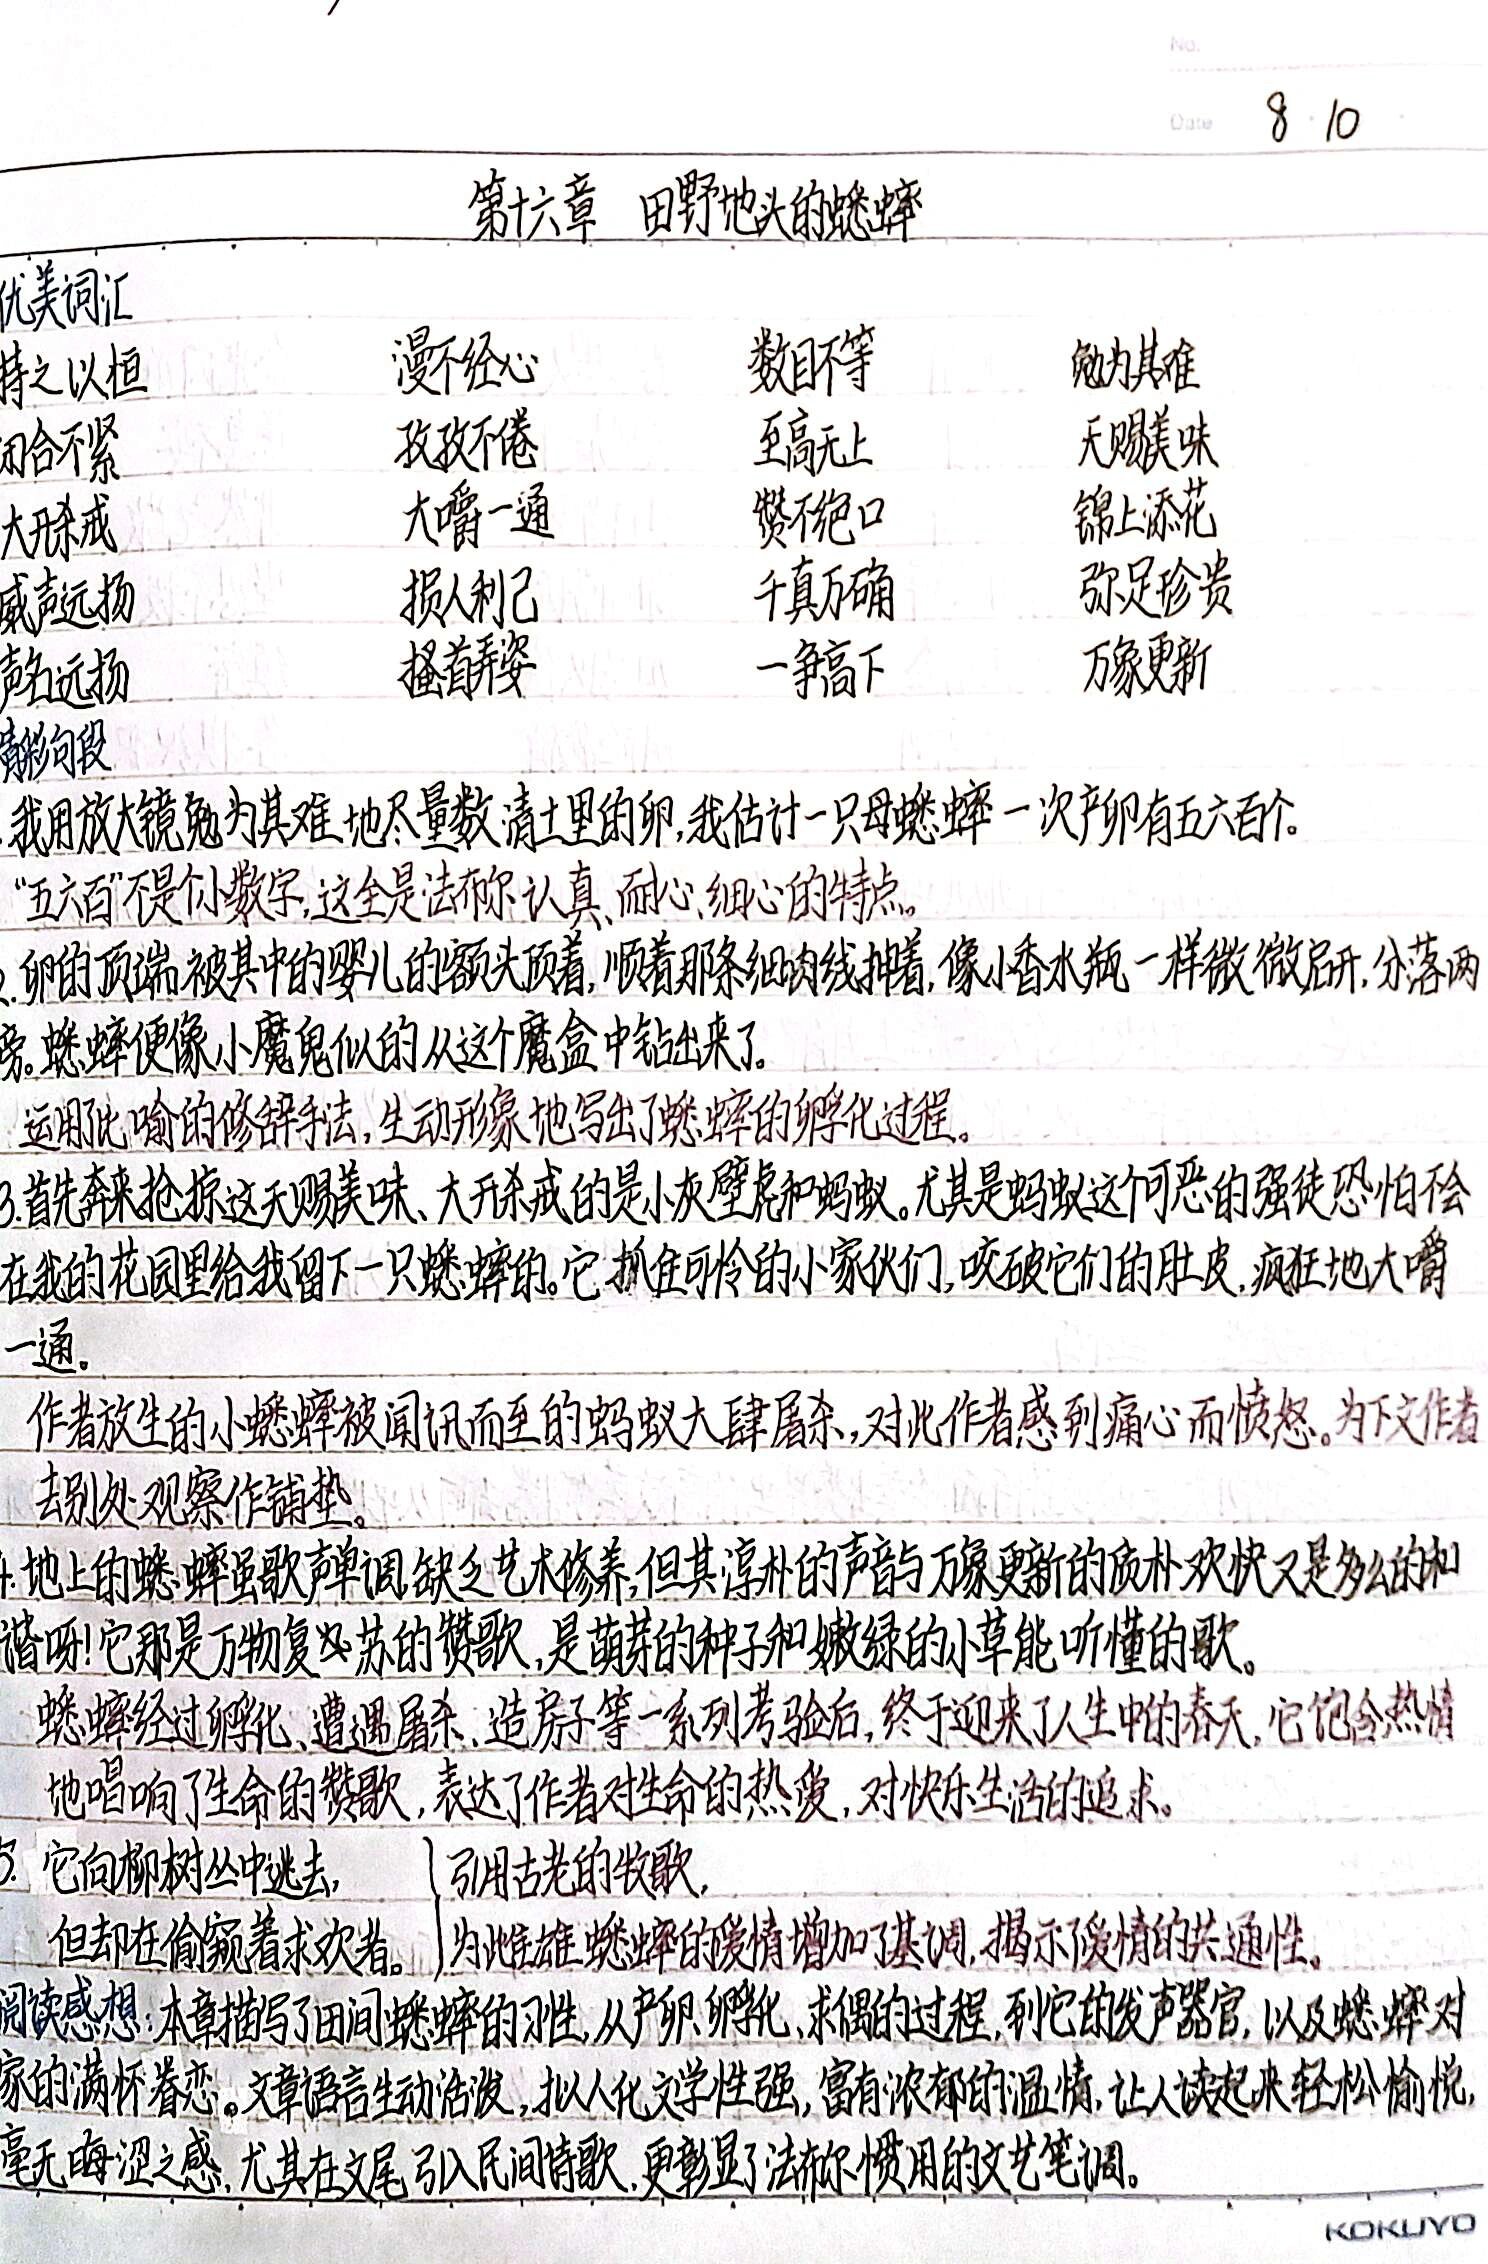 No.
Date 8·10
第十六章 田野地头的蟋蟀
优美词汇
持之以恒 漫不经心 数目不等 勉为其难
闭合不紧 孜孜不倦 至高无上 天赐美味
大开杀戒 大嚼一通 赞不绝口 锦上添花
威声远扬 损人利己 千真万确 弥足珍贵
声名远扬 搔首弄姿 一争高下 万象更新
精彩句段
1.我用放大镜勉为其难地尽量数清土里的卵,我估计一只母蟋蟀一次产卵有五六百个。
“五六百”不是个小数字,这全是法布尔认真、耐心、细心的特点。
2.卵的顶端被其中的婴儿的额头顶着,顺着那条细肉线抻着,像小香水瓶一样微微启开,分落两
旁。蟋蟀便像小魔鬼似的从这个魔盒中钻出来了。
运用了比喻的修辞手法,生动形象地写出了蟋蟀的孵化过程。
3.首先奔来抢掠这天赐美味、大开杀戒的是小灰壁虎和蚂蚁。尤其是蚂蚁这个可恶的强徒恐怕不会
在我的花园里给我留下一只蟋蟀的。它抓住可怜的小家伙们,咬破它们的肚皮,疯狂地大嚼
一通。
作者放生的小蟋蟀被闻讯而至的蚂蚁大肆屠杀,对此作者感到痛心而愤怒。为下文作者
去别处观察作铺垫。
4.地上的蟋蟀虽歌声单调,缺乏艺术修养,但其淳朴的声音与万象更新的质朴欢快又是多么的和
谐呀!它那是万物复苏的赞歌,是萌芽的种子和嫩绿的小草能听懂的歌。
蟋蟀经过孵化、遭遇屠杀、造房子等一系列考验后,终于迎来了人生中的春天,它饱含热情
地唱响了生命的赞歌,表达了作者对生命的热爱,对快乐生活的追求。
5.它向柳树丛中逃去, 引用古老的牧歌,
但却在偷窥着求欢者。 为雌雄蟋蟀的爱情增加了基调,揭示了爱情的共通性。
阅读感想:本章描写了田间蟋蟀的习性,从产卵、孵化、求偶的过程,到它的发声器官,以及蟋蟀对
家的满怀眷恋。文章语言生动活泼,拟人化文学性强,富有浓郁的温情,让人读起来轻松愉悦,
毫无晦涩之感,尤其在文尾引入民间诗歌,更彰显了法布尔惯用的文艺笔调。
KOKUYO